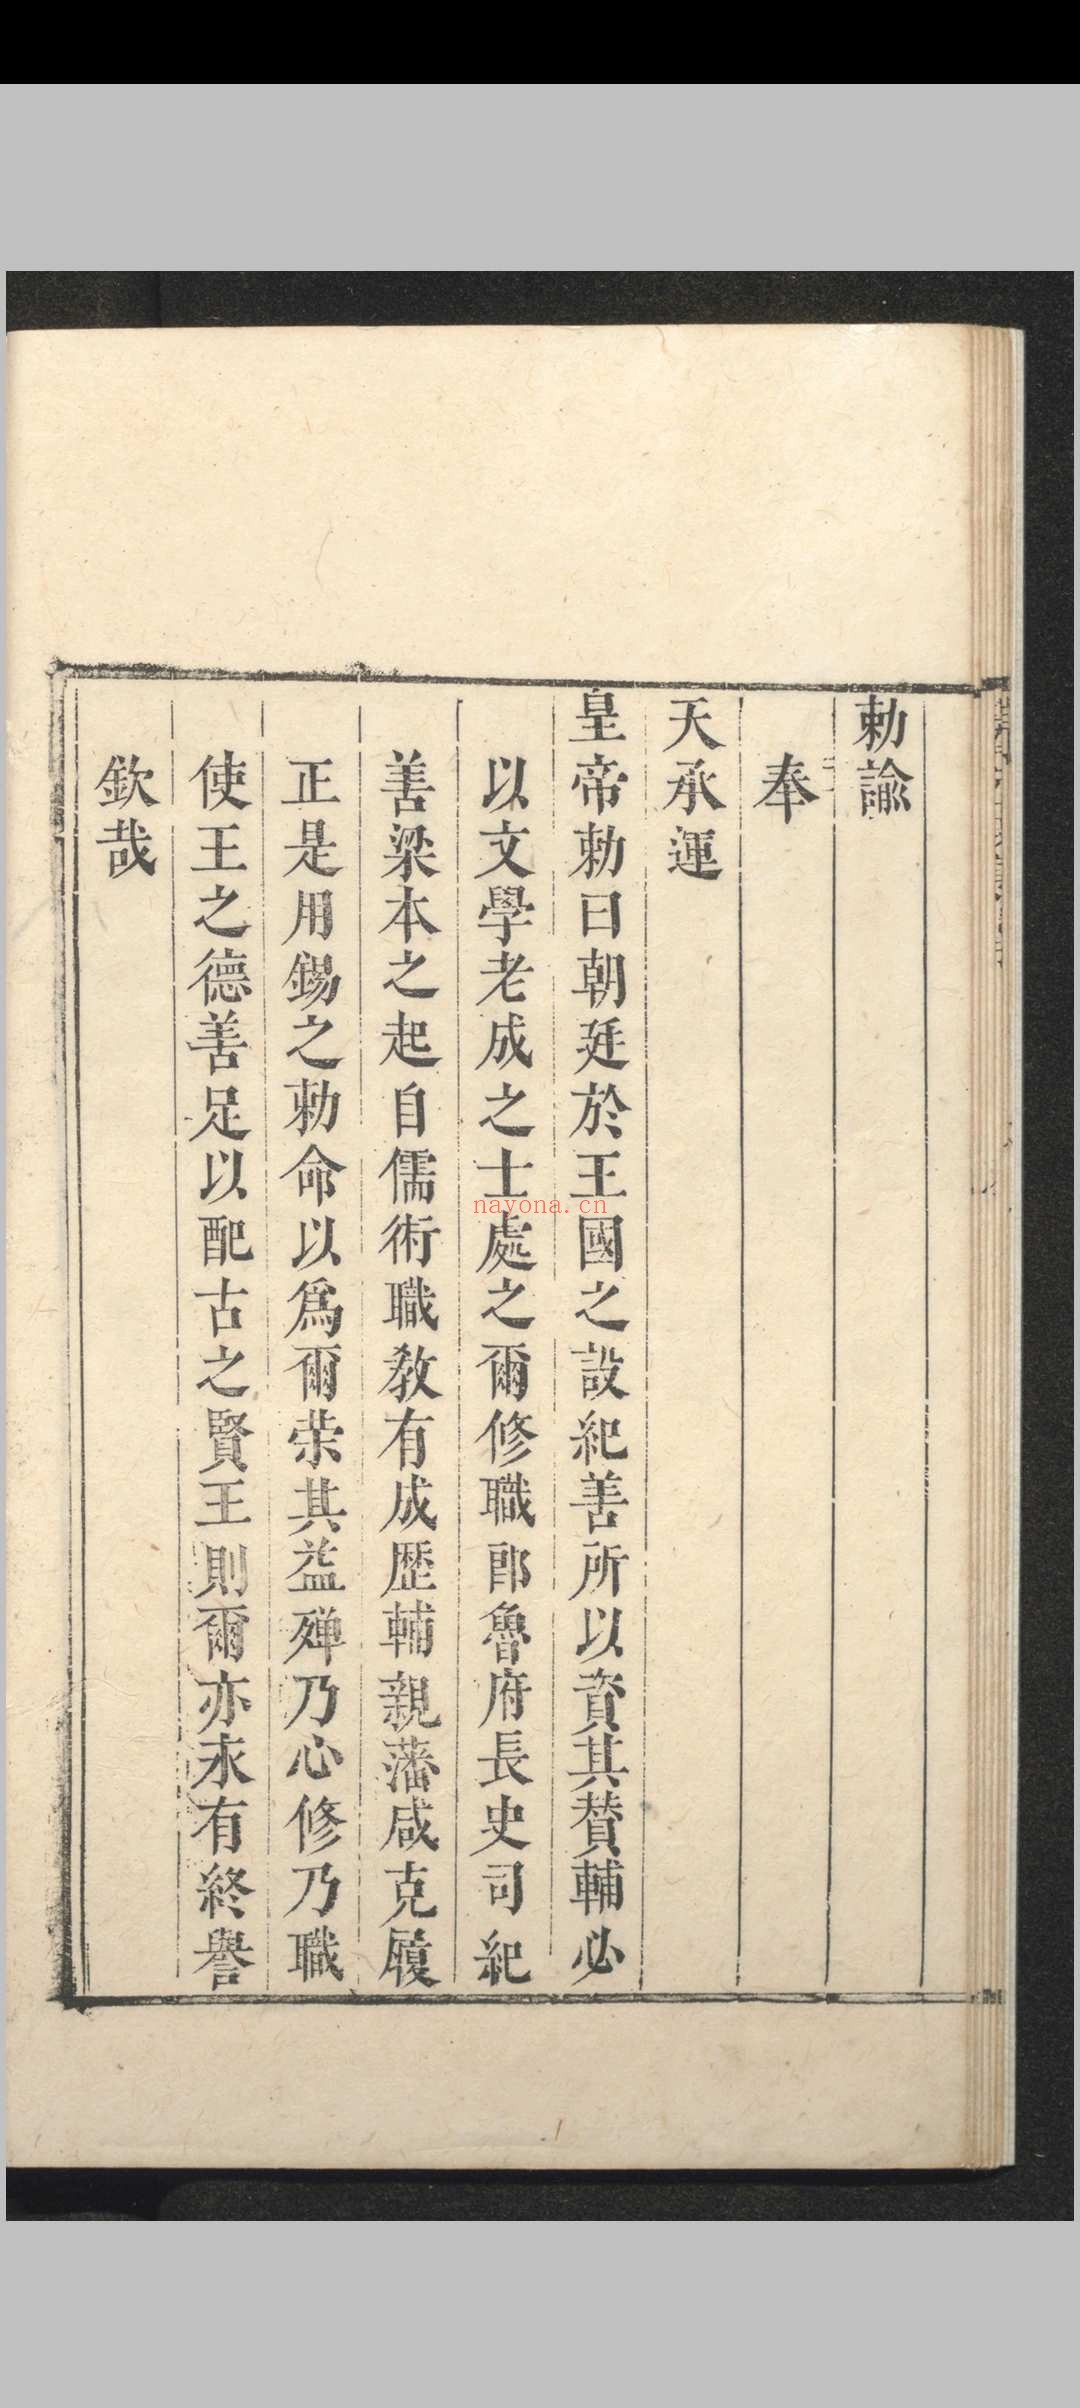 勅諭
奉
天承運
皇帝勅曰朝廷於王國之設紀善所以資其賛輔必
以文學老成之士處之爾修職郎魯府長史司紀
善梁本之起自儒術職教有成歴輔親藩咸克履
正是用錫之勅命以爲爾荣其益殫乃心修乃職
使王之德善足以配古之賢王則爾亦永有終譽
欽哉
nayona.cn